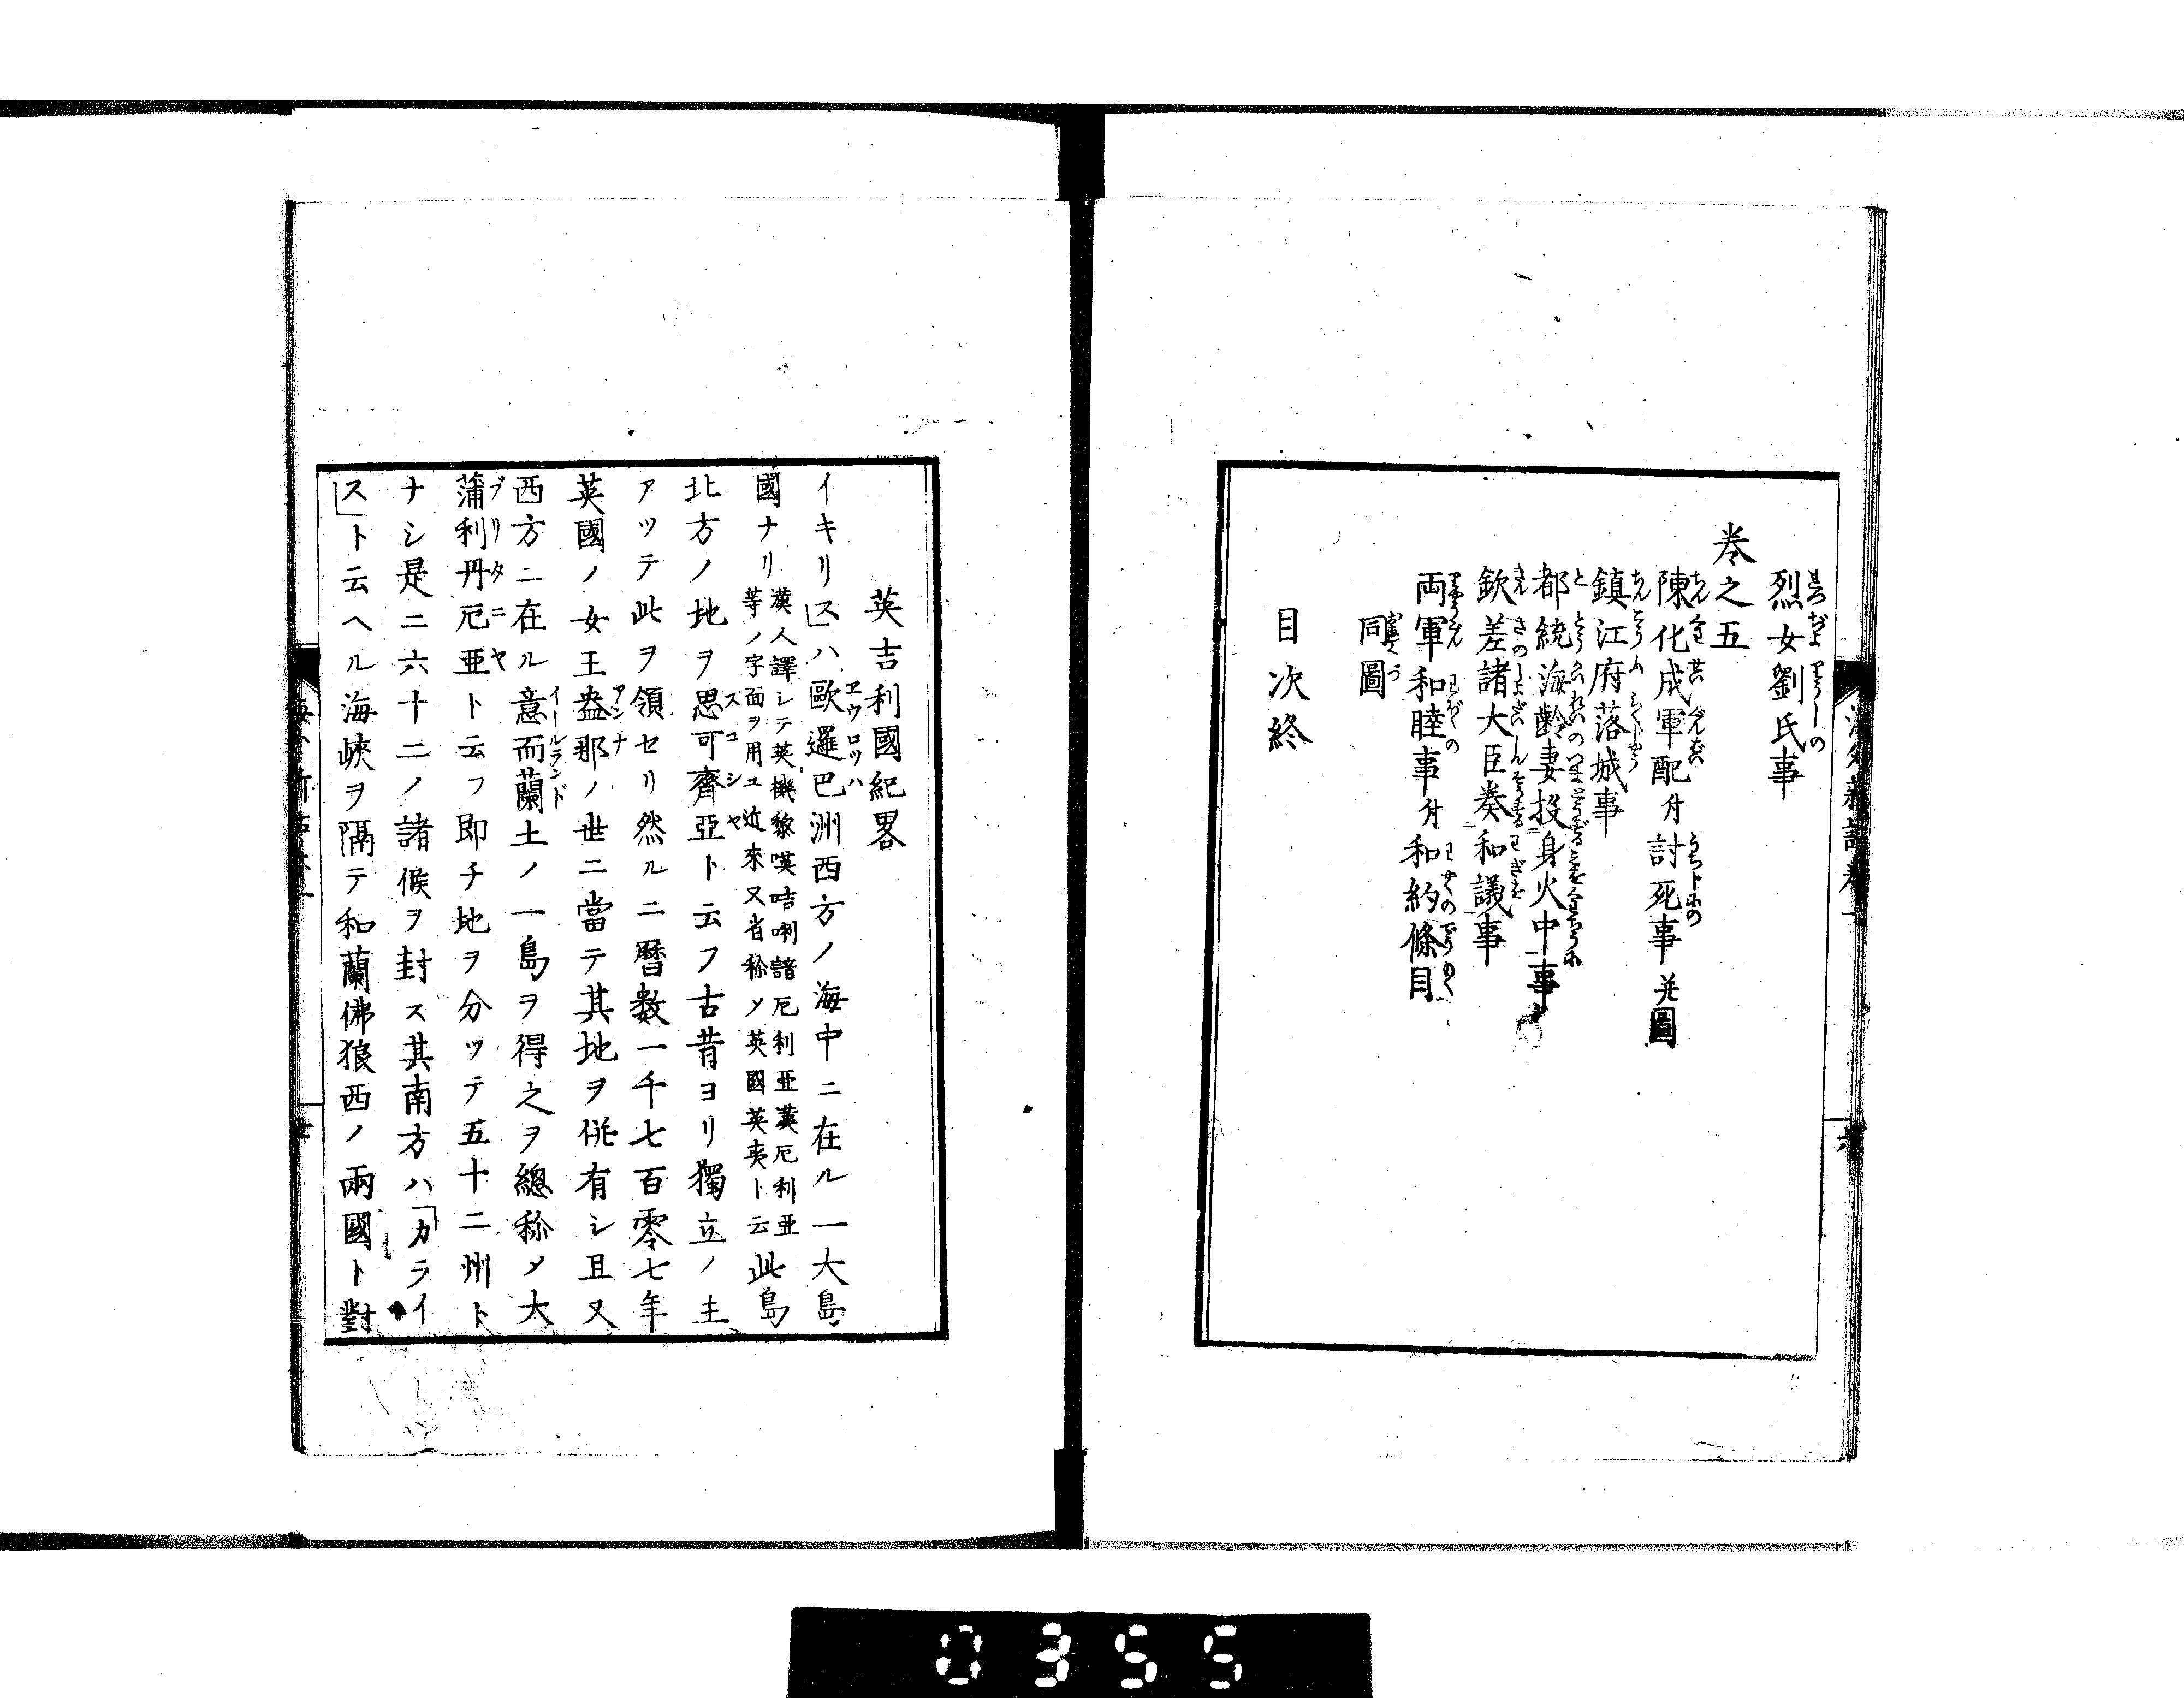 烈女劉氏事
巻之五
陳化成軍配付討死事並圖
鎮江府落城事
都統海齢妻投身火中事
欽差諸大臣奏和議事
両軍和睦事付和約條目
同圖
目次終
英吉利國紀畧
イキリス」ハ歐邏巴洲西方ノ海中ニ在ル一大島
國ナリ漢人譯シテ英機黎嘆咭唎諳厄利亜漢厄利亜
等ノ字面ヲ用ユ近來又省稱〆英國英夷ト云此島
北方ノ地ヲ思可齊亞ト云フ古昔ヨリ獨立ノ主
アッテ此ヲ領セリ然ルニ暦数一千七百零七年
英國ノ女王盎那ノ世ニ當テ其地ヲ併有シ且又
西方ニ在ル意而蘭土ノ一島ヲ得之ヲ總稱〆大
蒲利丹尼亜ト云フ即チ地ヲ分ッテ五十二州ト
ナシ是ニ六十二ノ諸侯ヲ封ス其南方ハ「カライ
ス」ト云ヘル海峡ヲ隔テ和蘭佛狼西ノ兩國ト對
0355